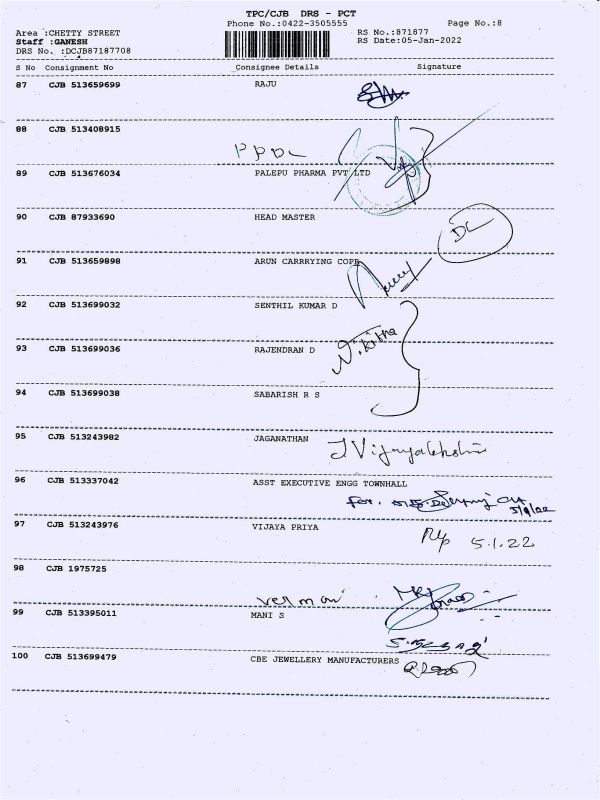 TPC/CJB DRS - PCT
Phone No.:0422-3505555 Page No.:8
Area :CHETTY STREET RS No.:871877
Staff :GANESH RS Date:05-Jan-2022
DRS No. :DCJB87187708
S No Consignment No Consignee Details Signature
87 CJB 513659699 RAJU
88 CJB 513408915
PPDL
89 CJB 513676034 PALEPU PHARMA PVT LTD
90 CJB 87933690 HEAD MASTER
DC
91 CJB 513659898 ARUN CARRRYING COPR
92 CJB 513699032 SENTHIL KUMAR D
93 CJB 513699036 RAJENDRAN D
Nikitha
94 CJB 513699038 SABARISH R S
95 CJB 513243982 JAGANATHAN
J Vijayalakshmi
96 CJB 513337042 ASST EXECUTIVE ENGG TOWNHALL
for.
97 CJB 513243976 VIJAYA PRIYA
5.1.22
98 CJB 1975725
99 CJB 513395011 MANI S
100 CJB 513699479 CBE JEWELLERY MANUFACTURERS